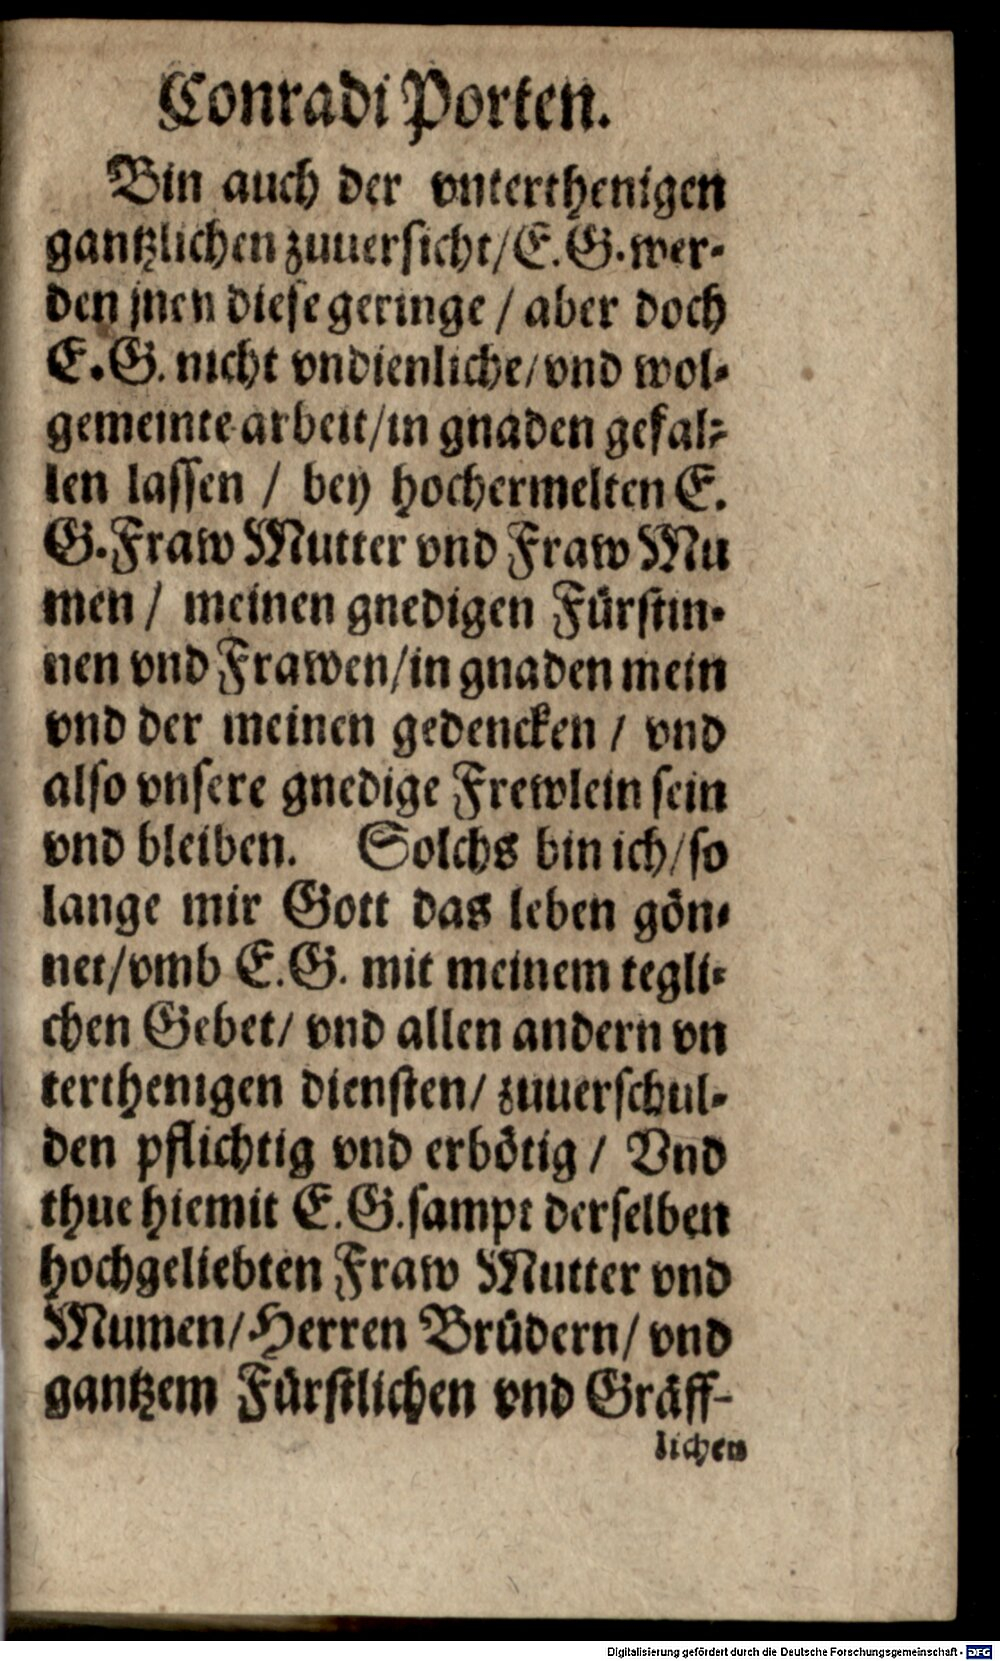 Conradi Porten.
Bin auch der vnterthenigen
gantzlichen zuuersicht/E.G. wer-
den jnen diese geringe / aber doch
E.G. nicht vndienliche/vnd wol-
gemeinte arbeit/in gnaden gefal-
len lassen / bey hochermelten E.
G. Fraw Mutter vnd Fraw Mu
men / meinen gnedigen Fürstin-
nen vnd Frawen/in gnaden mein
vnd der meinen gedencken / vnd
also vnsere gnedige Frewlein sein
vnd bleiben. Solchs bin ich/so
lange mir Gott das leben gön-
net/vmb E.G. mit meinem tegli-
chen Gebet/ vnd allen andern vn
terthenigen diensten/ zuuerschul-
den pflichtig vnd erbötig / Vnd
thue hiemit E.G. sampt derselben
hochgeliebten Fraw Mutter vnd
Mumen/Herren Brüdern/ vnd
gantzem Fürstlichen vnd Gräff-
lichen
Digitalisierung gefördert durch die Deutsche Forschungsgemeinschaft - DFG